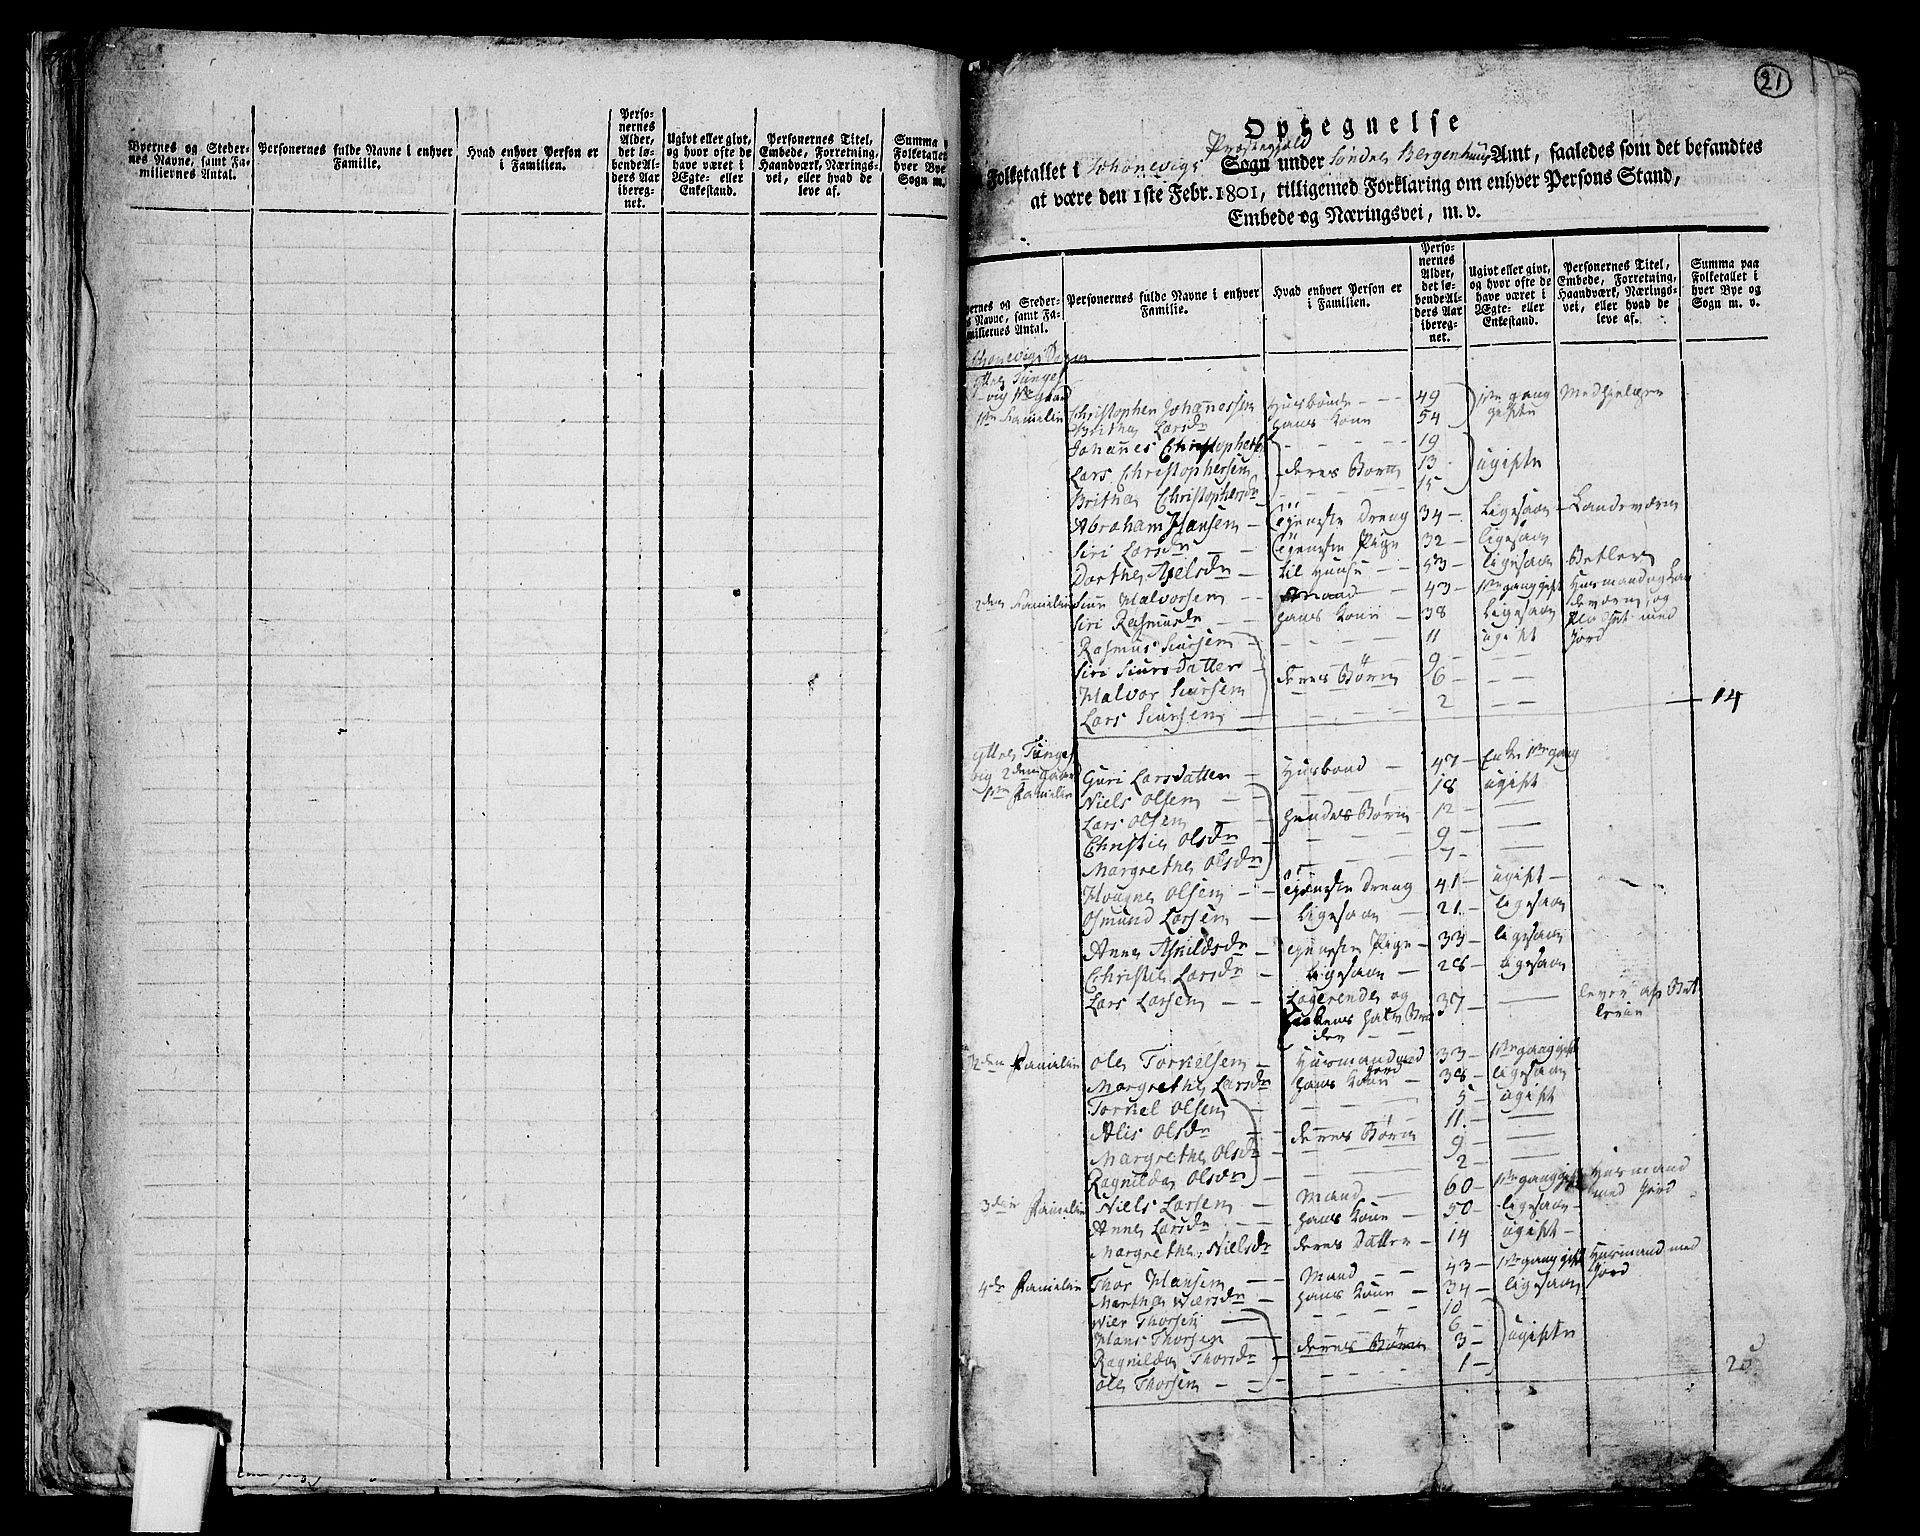 Byernes og Steder-
nes Navne, samt Fa-
miliernes Antal.
Personernes fulde Navne i enhver
Familie.
Hvad enhver Person er
i Familien.
Perso-
nernes
Alder,
det lø-
bende Al-
ders Aar
ibereg-
net.
Ugivt eller givt,
og hvor ofte de
have været i
Ægte- eller
Enkestand.
Personernes Titel,
Embede, Forretning,
Haandværk, Nærings-
vei, eller hvad de
leve af.
Summa
Folketallet
hver Bye
Sogn m.
21
Optegnelse
Præstegield
Folketallet i Schonevigs Sogn under Søndre Bergenhuus Amt, saaledes som det befandtes
at være den 1ste Febr. 1801, tilligemed Forklaring om enhver Persons Stand,
Embede og Næringsvei, m. v.
ernes og Steder-
s Navne, samt Fa-
miliernes Antal.
Personernes fulde Navne i enhver
Familie.
Hvad enhver Person er
i Familien.
Perso-
nernes
Alder,
det lø-
bende Al-
ders Aar
ibereg-
net.
Ugivt eller givt,
og hvor ofte de
have været i
Ægte- eller
Enkestand.
Personernes Titel,
Embede, Forretning,
Haandværk, Nærings-
vei, eller hvad de
leve af.
Summa paa
Folketallet i
hver Bye og
Sogn m. v.
Schonevigs Sogn
Ytre Tunges
vig 1ste gaard
1ste Familie Christopher Johanessen Husbonde 49 1ste gang Medhielpere
Britha Larsdr hans Kone 54 gifte
Johanes Christophers 19
Lars Christophersen deres Børn 13 ugifte
Britha Christophersdr 15
Abraham Hansen tjeneste Dreng 34 Ligesaa Landeværn
Siri Larsdr tjeneste Pige 32 ligesaa
Dorthe Nelsdr til Huuse 53 ligesaa Betler
2den Familie Siur Halvorsen Mand 43 1ste gang gift Huusmand og Lan
Siri Rasmusdr hans Kone 38 Ligesaa deværn, og
Rasmus Siursen 11 ugift med
Jord
Siri Siursdatter 9
Halvor Siursen deres Børn 6
Lars Siursen 2 14
Ytre Tunges
vig 2den gaard
1ste Familie Guri Larsdatter Husbond 47 Enke 1ste gang
Niels Olsen 18 ugift
Lars Olsen hendes Børn 12
Christie Olsdr 9
Margrethe Olsdr 7
Hougne Olsen tjeneste Dreng 41 ugift
Osmund Larsen Ligesaa 21 ligesaa
Anne Asnildsdr tjeneste Pige 33 ligesaa
Christie Larsdr ligesaa 28 ligesaa
Lars Larsen Logerende og 37 lever af Bet
Enkens halv Bro lerie
der
2den Familie Ole Torkelsen Huusmand med 33 1ste gang gift
Jord
Margrethe Larsdr hans Kone 38 ligesaa
Torkel Olsen 5 ugift
Alis Olsdr deres Børn 11
Margrethe Olsdr 9
Ragnilda Olsdr 2
3die Familie Niels Larsen Mand 60 1ste gang gift Huusmand
med Jord
Anne Larsdr hans Kone 50 ligesaa
Margrethe Nielsdr deres Datter 14 ugift
4de Familie Thor Hansen Mand 43 1ste gang gift Huusmand med
Jord
Martha Wiersdr hans Kone 34 ligesaa
Wier Thorsen 10
Hans Thorsen 6
Ragnilda Thorsdr deres Børn 3 ugifte
Ole Thorsen 1